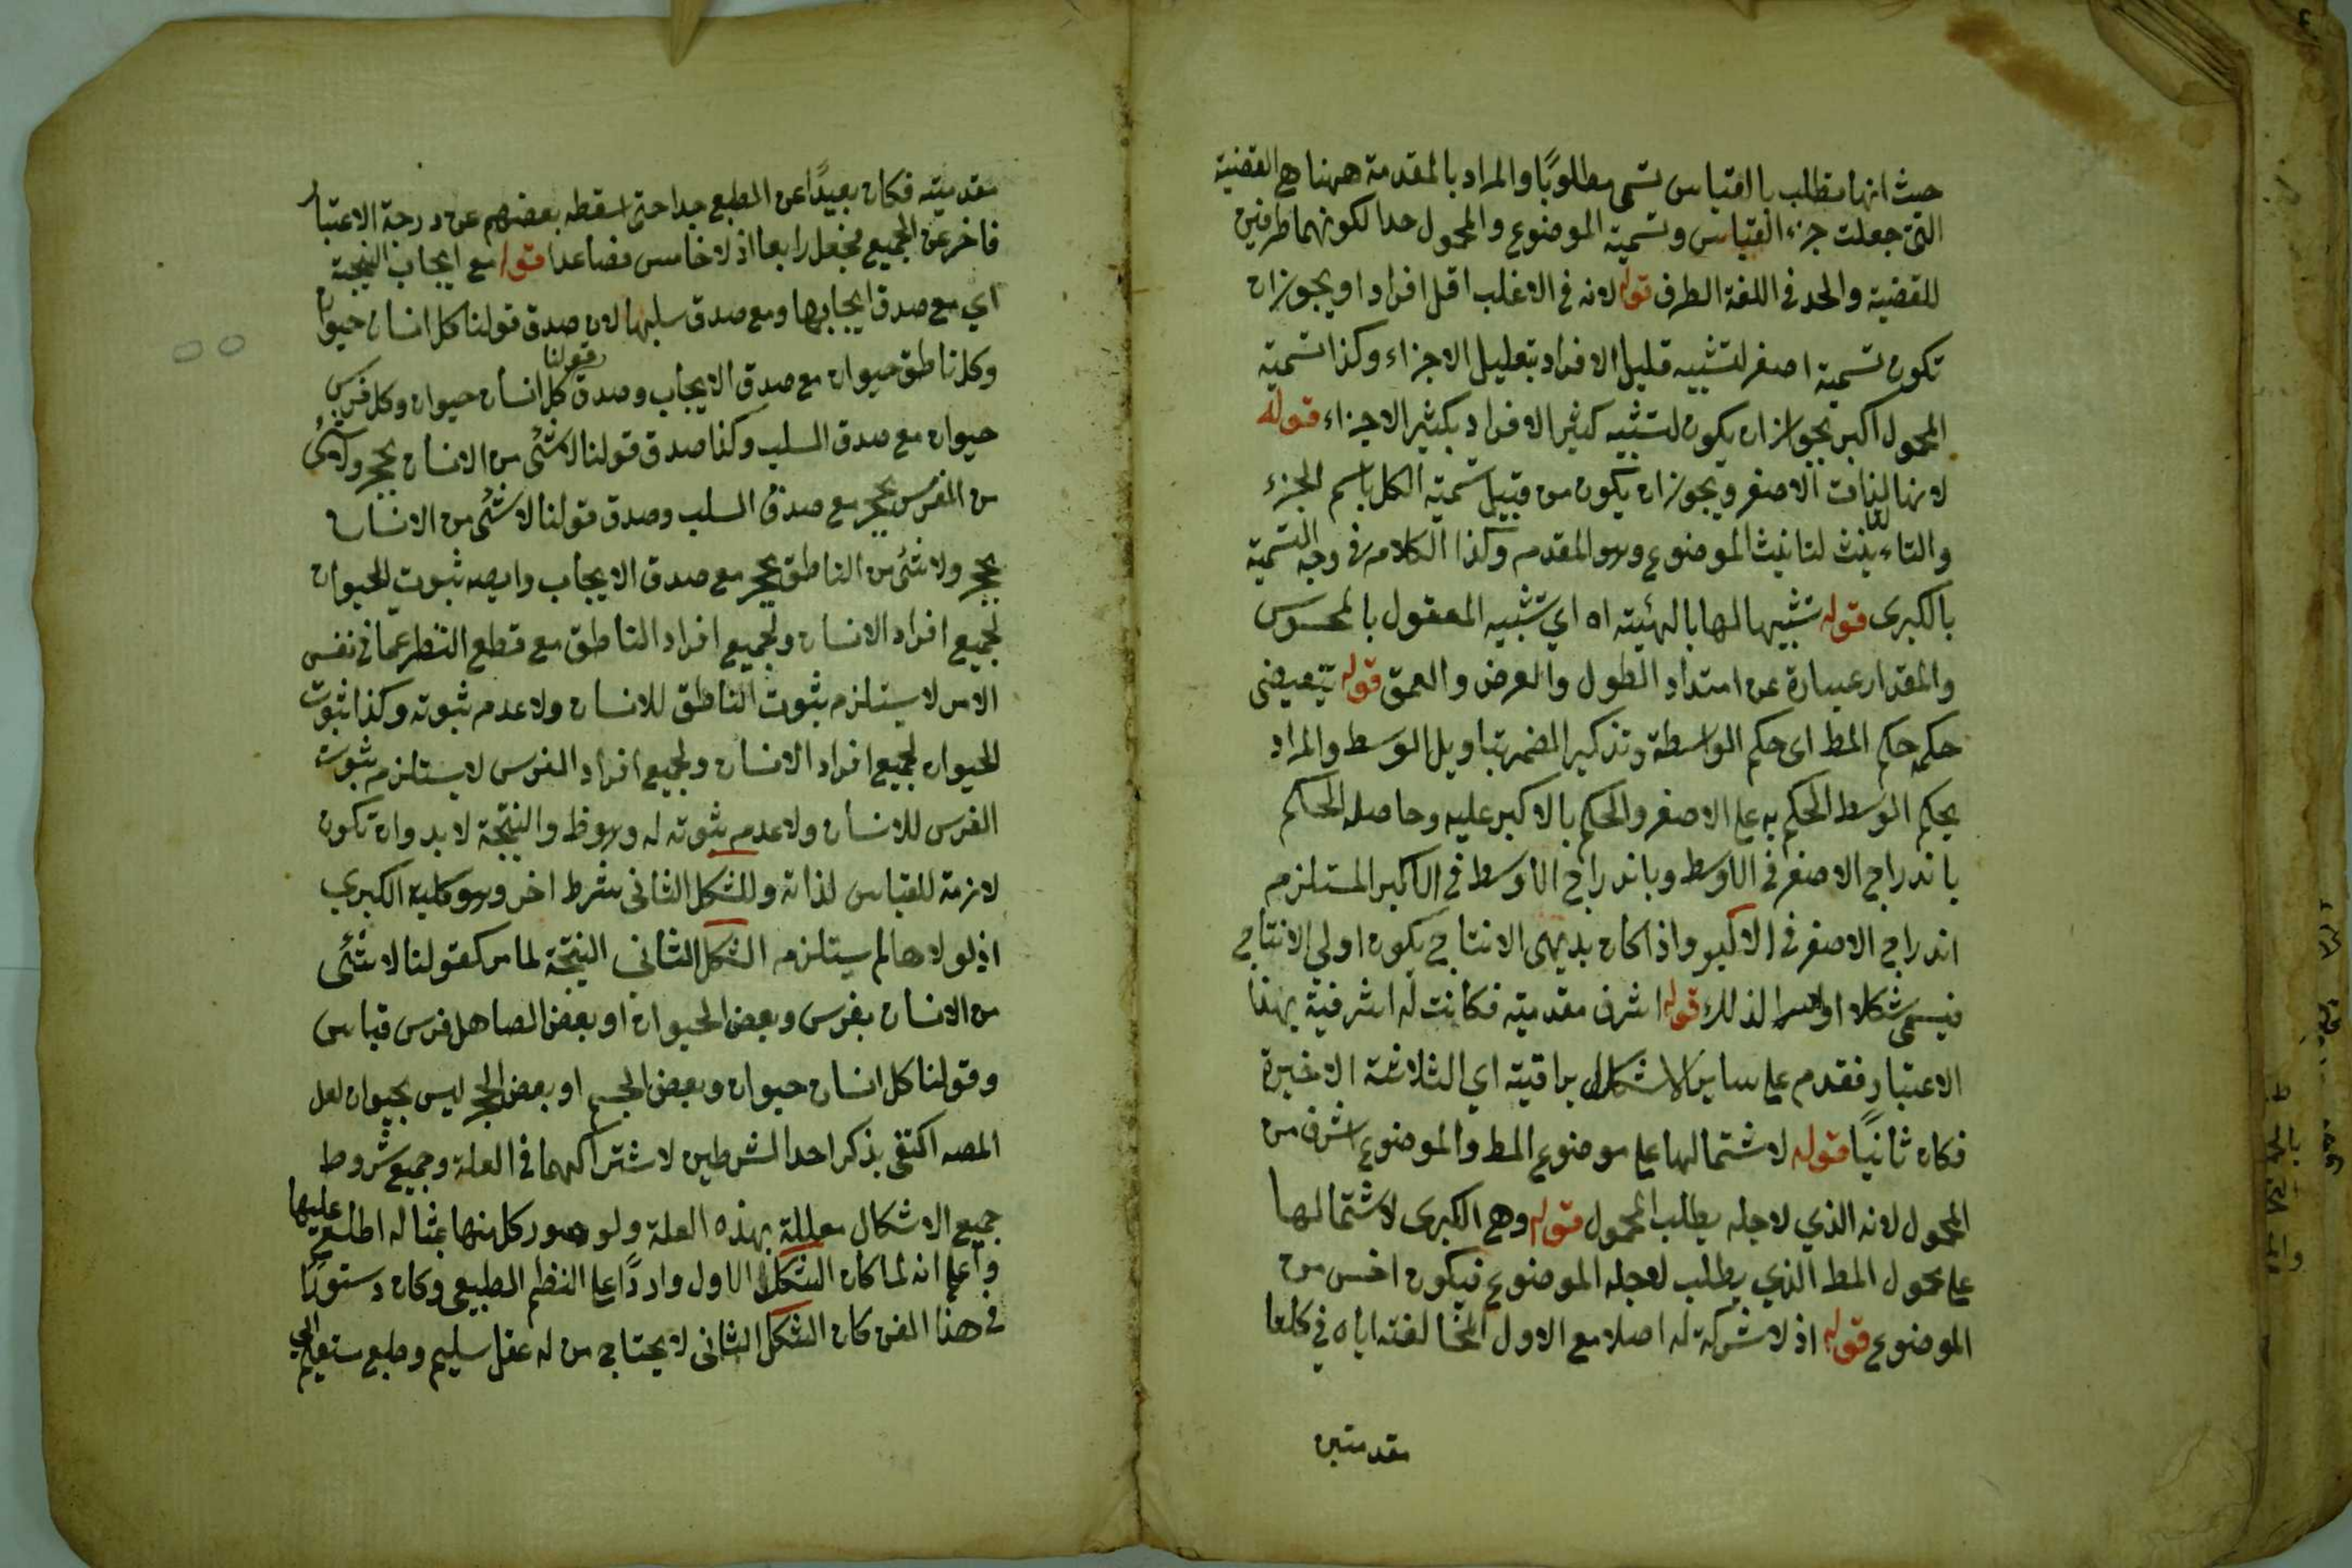 حيث انها تطلب بالقياس تسمى مطلوبًا والمراد بالمقدمة ههنا هي القضية
التى جعلت جزء القياس وتسمية الموضوع والمحمول حدا لكونهما طرفين
للقضية والحد فى اللغة الطرف قوله لانه فى الاغلب اقل افرادا ويجوز ان
تكون تسمية اصغر لتشبيه قليل الافراد بقليل الاجزاء وكذا تسمية
المحمول اكبر يجوز ان يكون لتشبيه كثير الافراد بكثير الاجزاء قوله
لانها لذات الاصغر ويجوز ان يكون من قبيل تسمية الكل باسم الجزء
والتاء لتانيث الموضوع وهو المقدمه وكذا الكلام فى وجه التسمية
بالكبرى قوله تشبيها لها بالهيئة اه اي تشبيه المعقول بالمحسوس
والمقدار عبارة عن امتداد الطول والعرض والعمق قوله
حكمه حكم المط اى حكم الواسطة وتذكير الضمير بتاويل الوسط والمراد
بحكم الوسط الحكم به على الاصغر والحكم بالاكبر عليه وحاصله الحكم
باندراج الاصغر فى الاوسط وباندراج الاوسط فى الاكبر المستلزم
اندراج الاصغر فى الاكبر واذا كان بديهى الانتاج يكون اولى الانتاج
فيسمى شكلا اولا لذلك قوله اشرف مقدميته فكانت له اشرفية بهذا
الاعتبار فقدم على ساير الاشكال براقيته اي الثلاثة الاخيرة
فكان ثانيًا قوله لاشتمالها على موضوع المط والموضوع اشرف من
المحمول لانه الذي لاجله يطلب المحمول قوله وهى الكبرى لاشتمالها
على محمول المط الذي يطلب لاجله الموضوع فيكون اخس من
الموضوع قوله اذ لا شركة له اصلا مع الاول لمخالفته اياه في كلتا
مقدمتين
مقدميته فكان بعيدًا عن الطبع جدا حتى اسقطه بعضهم عن درجة الاعتبار
فاخر عن الجميع فجعل رابعا اذ لا خامس فصاعدا قوله مع ايجاب النتيجة
اي مع صدق ايجابها ومع صدق سلبها لان صدق قولنا كل انسان حيوان
وكل ناطق حيوان مع صدق الايجاب وصدق قولنا كل انسان حيوان وكل فرس
حيوان مع صدق السلب وكذا صدق قولنا لا شئ من الانسان بحجر ولا شئ
من الفرس بحجر مع صدق السلب وصدق قولنا لا شئ من الانسان
بحجر ولا شئ من الناطق بحجر مع صدق الايجاب وايضه ثبوت الحيوان
لجميع افراد الانسان ولجميع افراد الناطق مع قطع النظر عما فى نفس
الامر لا يستلزم ثبوت الناطق للانسان ولا عدم ثبوته وكذا ثبوت
الحيوان لجميع افراد الانسان ولجميع افراد الفرس لا يستلزم ثبوت
الفرس للانسان ولا عدم ثبوته له وهو ظ والنتيجة لا بد وان تكون
لازمة للقياس لذاته وللشكل الثانى شرط اخر وهو كلية الكبري
اذ لولاها لم يستلزم الشكل الثانى النتيجة لما مر كقولنا لا شئ
من الانسان بفرس وبعض الحيوان او بعض الصاهل فرس قياس
وقولنا كل انسان حيوان وبعض الجسم او بعض الحجر ليس بحيوان لعل
المصه اكتفى بذكر احد الشرطين لاشتراكهما فى العلة وجميع شروط
جميع الاشكال معللة بهذه العلة ولو صور كل منها بمثاله اطلع عليها
واعلم انه لما كان الشكل الاول واردًا على النظم الطبيعى وكان دستورًا
فى هذا الفن كان الشكل الثانى لا يحتاج من له عقل سليم وطبع مستقيم الى